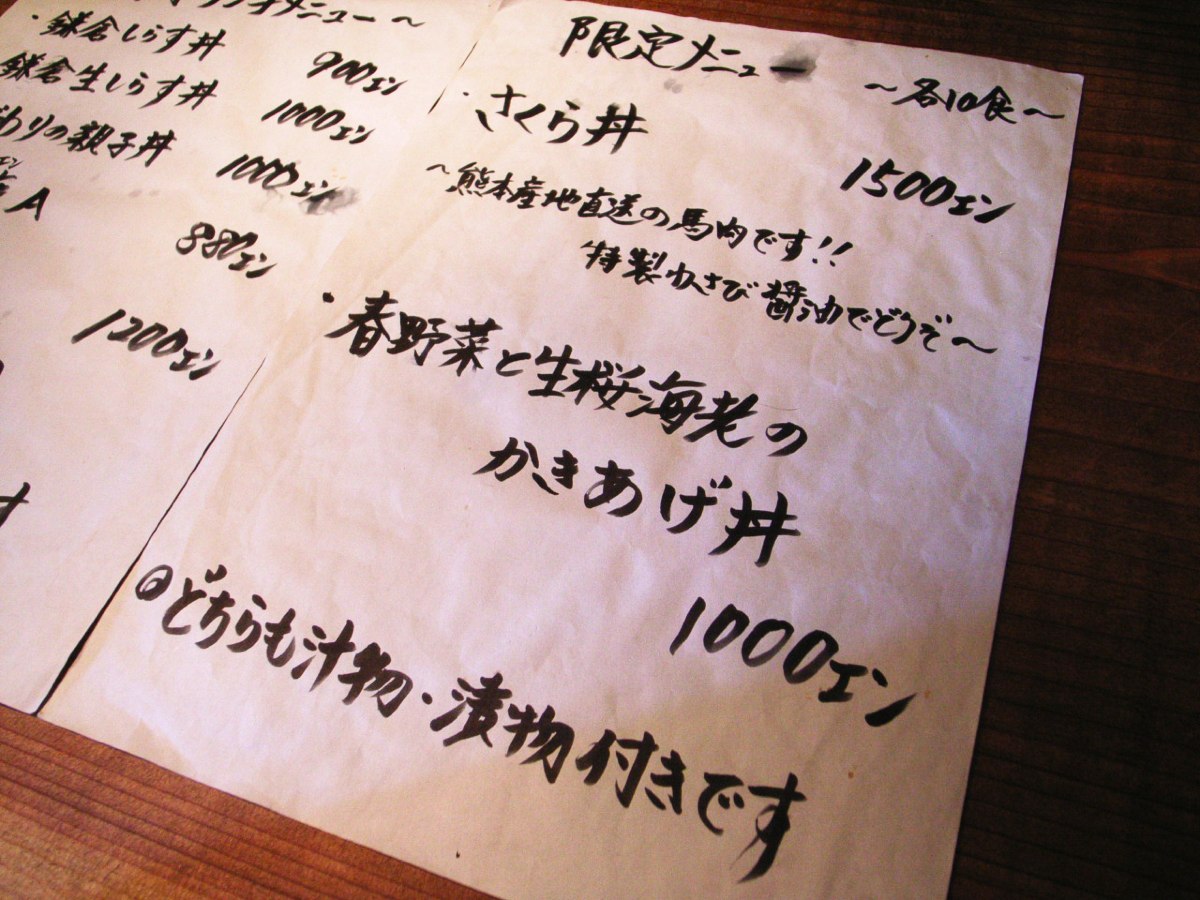 メニュー～
・鎌倉しらす丼
900エン
鎌倉生しらす丼
1000エン
わりの親子丼
1000エン
A
880エン
1200エン
限定メニュー
～各10食～
・さくら丼
1500エン
～熊本産地直送の馬肉です!!
特製わさび醤油でどうぞ～
・春野菜と生桜海老の
かきあげ丼
1000エン
◎どちらも汁物・漬物付きです